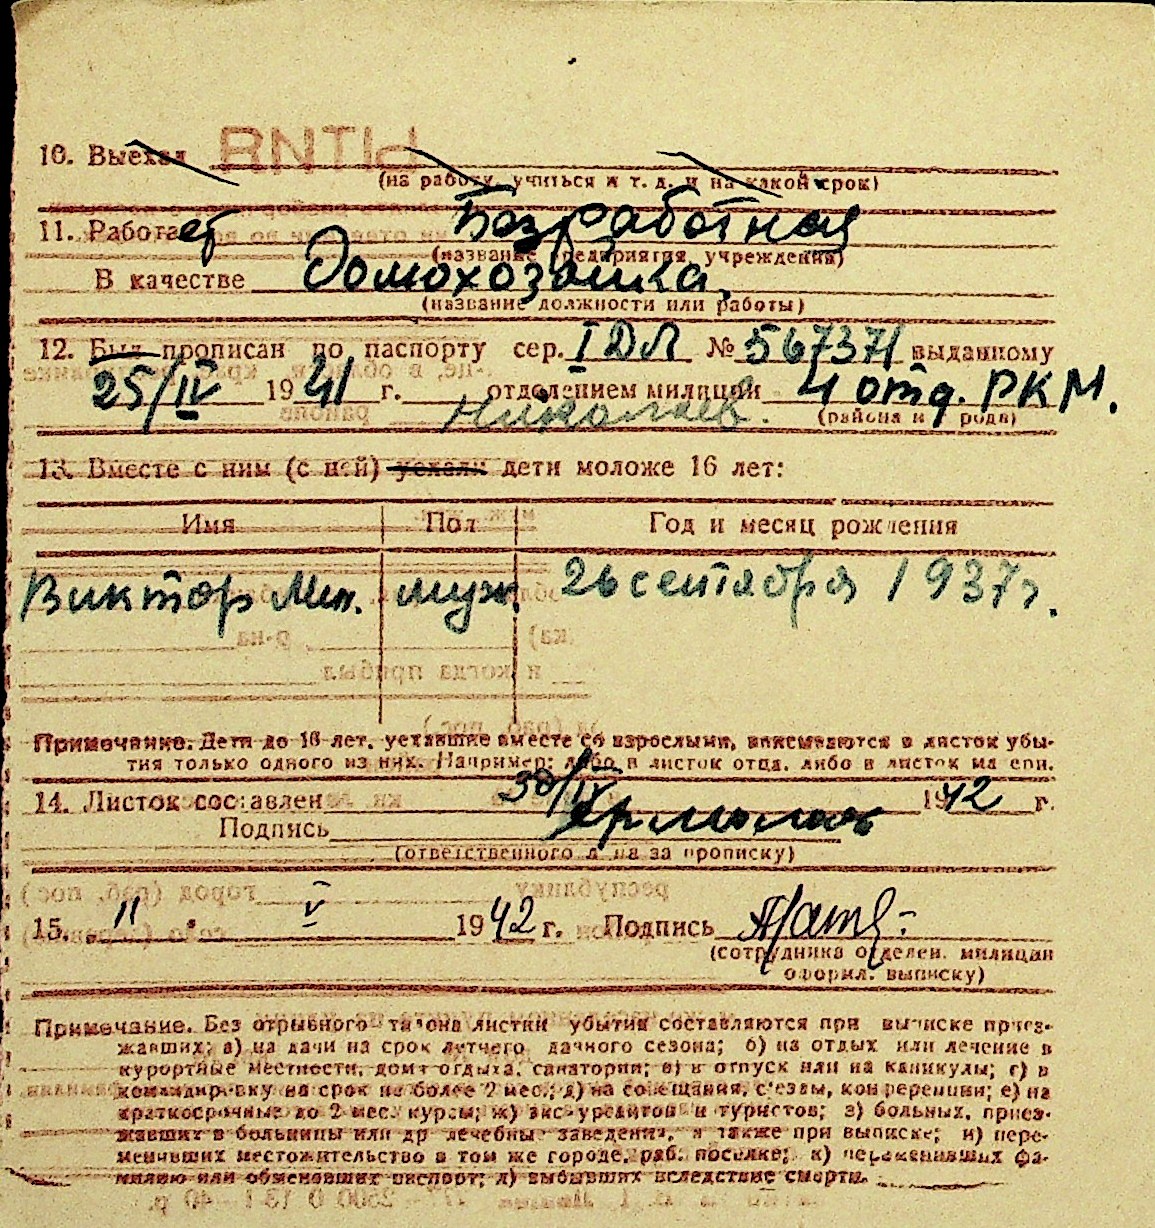 10. Выехал
(на работу, учиться и т. д. и на какой срок)
11. Работает Безработная
(название предприятия, учреждения)
В качестве Домохозяйка.
(название должности или работы)
12. Был прописан по паспорту сер. I ДЛ № 567371 выданному
25/IV 1941 г. отделением милиции 4 отд. РКМ.
Николаев. (района и города)
13. Вместе с ним (с ней) уехали дети моложе 16 лет:
Имя Пол Год и месяц рождения
Виктор Мих. муж. 26 сентября 1937 г.
Примечание. Дети до 16 лет, уехавшие вместе со взрослыми, вписываются в листок убы-
тия только одного из них. Например: либо в листок отца, либо в листок матери.
14. Листок составлен 30/IV 1942 г.
Подпись
(ответственного лица за прописку)
15. " 11 " V 1942 г. Подпись
(сотрудника отделен. милиции
оформл. выписку)
Примечание. Без отрывного талона листки убытия составляются при выписке приез-
жавших: а) на дачи на срок летнего дачного сезона; б) на отдых или лечение в
курортные местности, дома отдыха, санатории; в) в отпуск или на каникулы; г) в
командировку на срок не более 2 мес.; д) на совещания, съезды, конференции; е) на
краткосрочные до 2 мес. курсы; ж) экскурсантов и туристов; з) больных, приез-
жавших в больницы или др. лечебные заведения, а также при выписке; и) пере-
менивших местожительство в том же городе, раб. поселке; к) переменивших фа-
милию или обменявших паспорт; л) выбывших вследствие смерти.